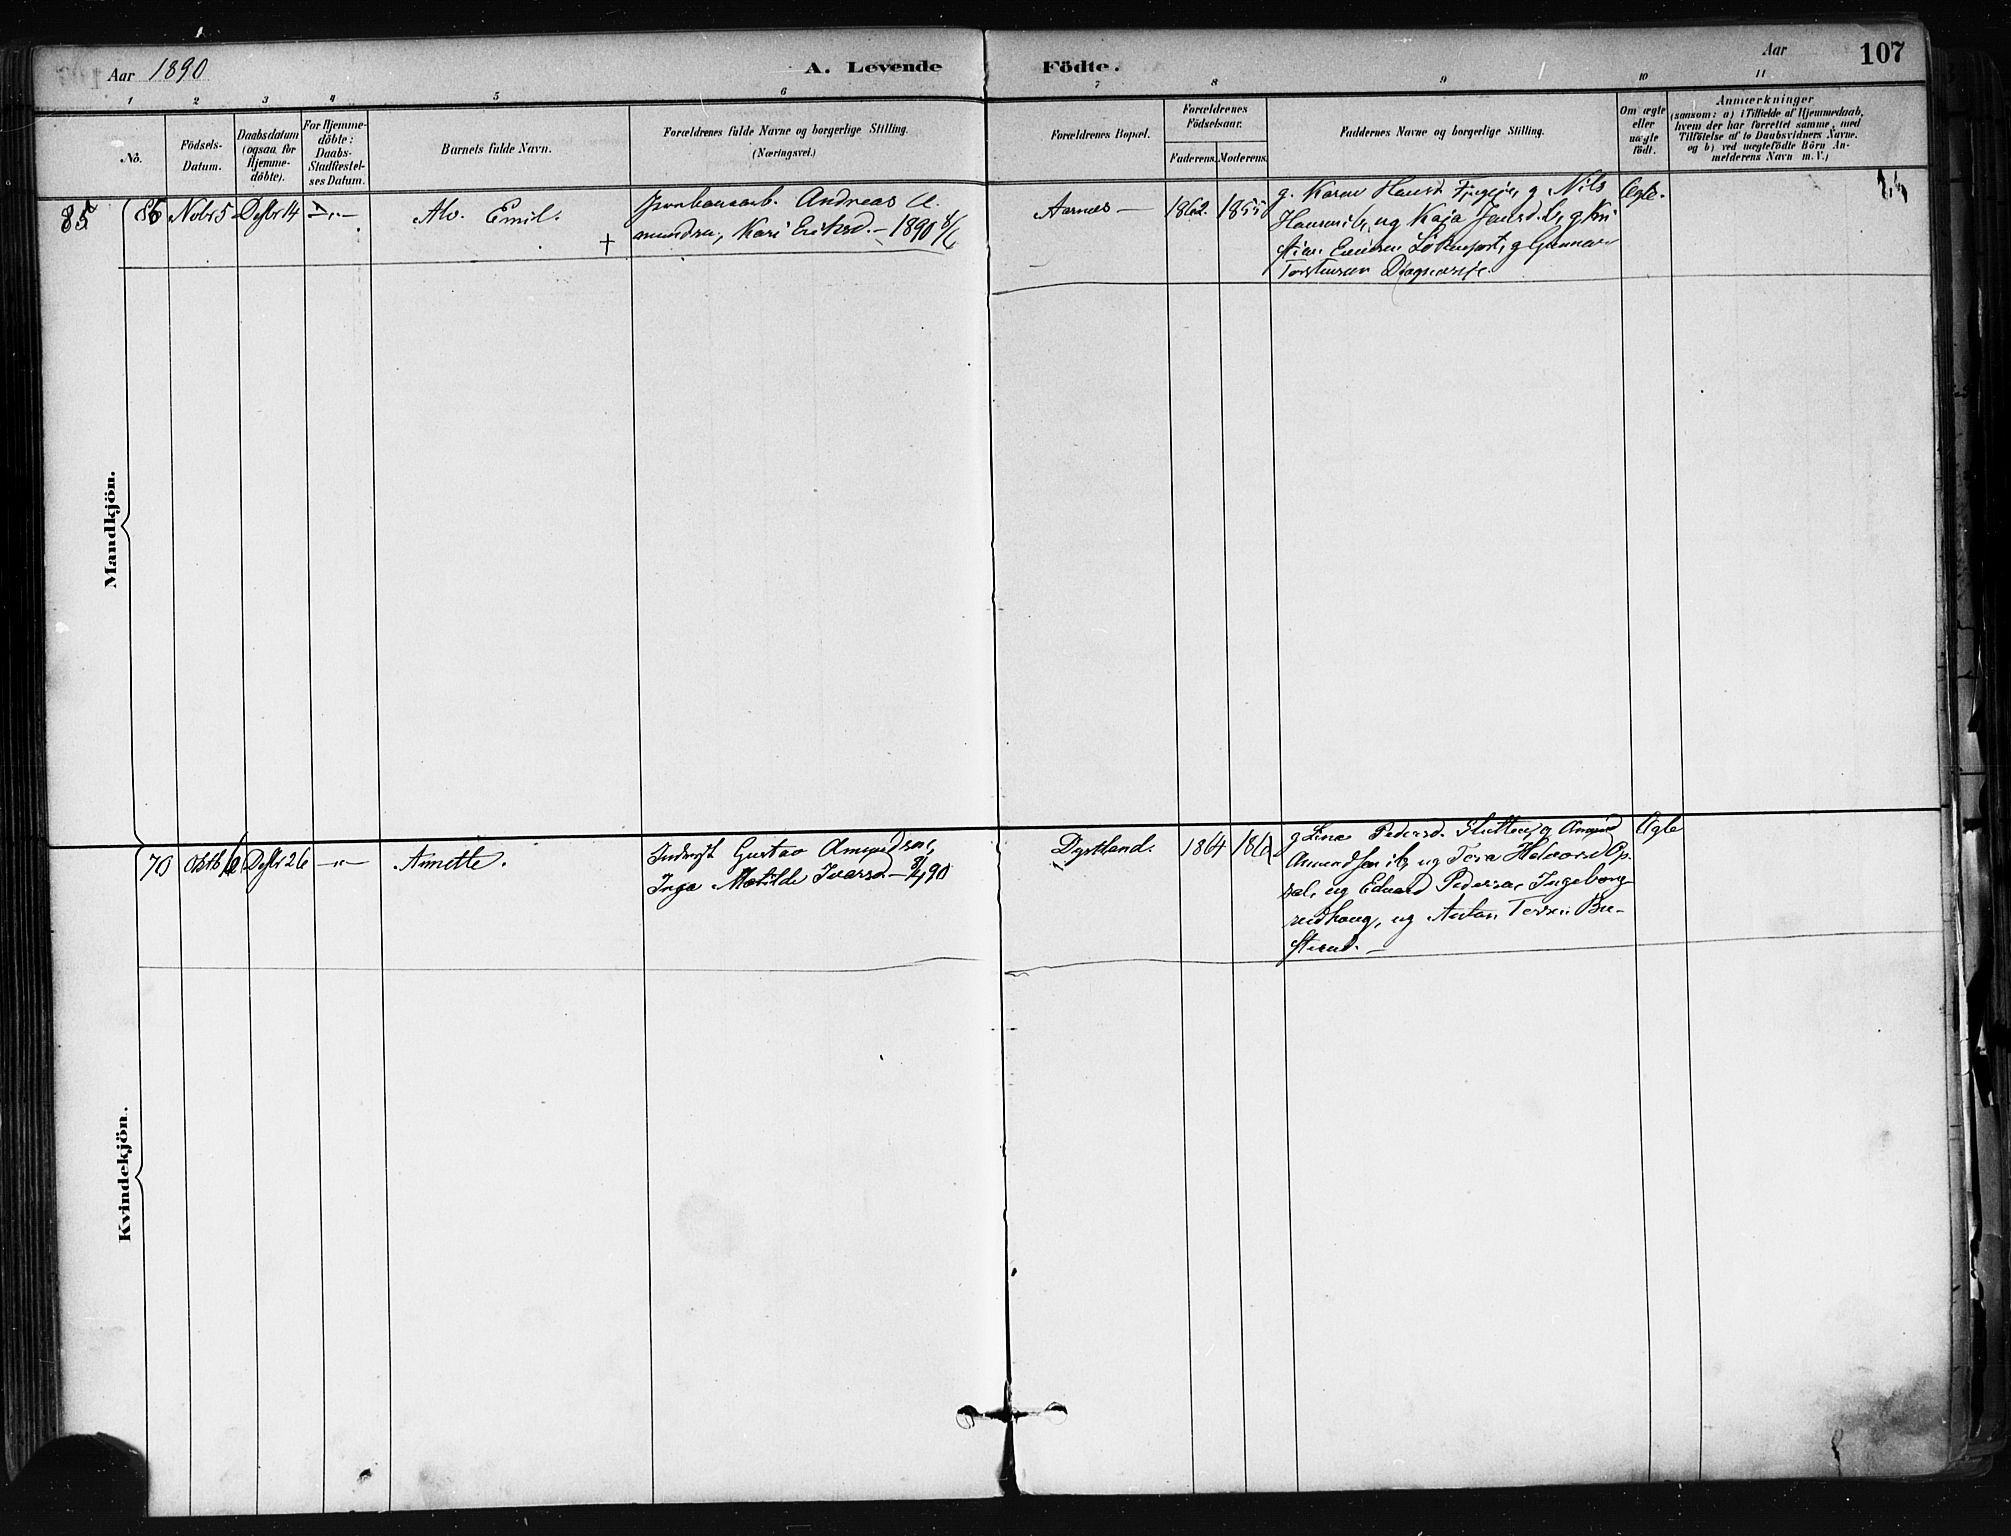 Aar 1890
A. Levende
Födte.
Aar
107
1 2 3 4 5 6 7 8 9 10 11
No.
Födsels-
Datum.
Daabsdatum
(ogsaa for
Hjemme-
döbte).
For Hjemme-
döbte:
Daabs-
Stadfæstel-
ses Datum.
Barnets fulde Navn.
Forældrenes fulde Navne og borgerlige Stilling.
(Næringsvei.)
Forældrenes Bopæl.
Forældrenes
Födselsaar.
Faderens. Moderens.
Faddernes Navne og borgerlige Stilling.
Om ægte
eller
uægte
födt.
Anmærkninger
(saasom: a) i Tilfælde af Hjemmedaab,
hvem der har forrettet samme, med
Tilföielse af to Daabsvidners Navne.
og b) ved uægtefödte Börn An-
melderens Navn m. V.)
Mandkjön.
85
86 Nobr 5 Dsbr 14
Alv. Emil.
Andreas A
mundsen, Kari Eriksd. – 1890
Aarnes –
1862. 1855
g. Karen Hansd. g Nils
Hansen ib, ug Kaja Jensd. ib, g Kri
g Gunnar
Torstensen
Ægte.
Kvindekjön.
70 Dsbr 26 –"–
Annette.
Gustav Amundsen,
Inga Matilde Ivarsd. – 90
Dystland.
1864
g Lina Pedersd. g Amund
Amundsen ib, ug Tora Halvorsd Op
sal, ug Edvard Pedersen Ingeborg
rudhaug, ug Anton
Ægte